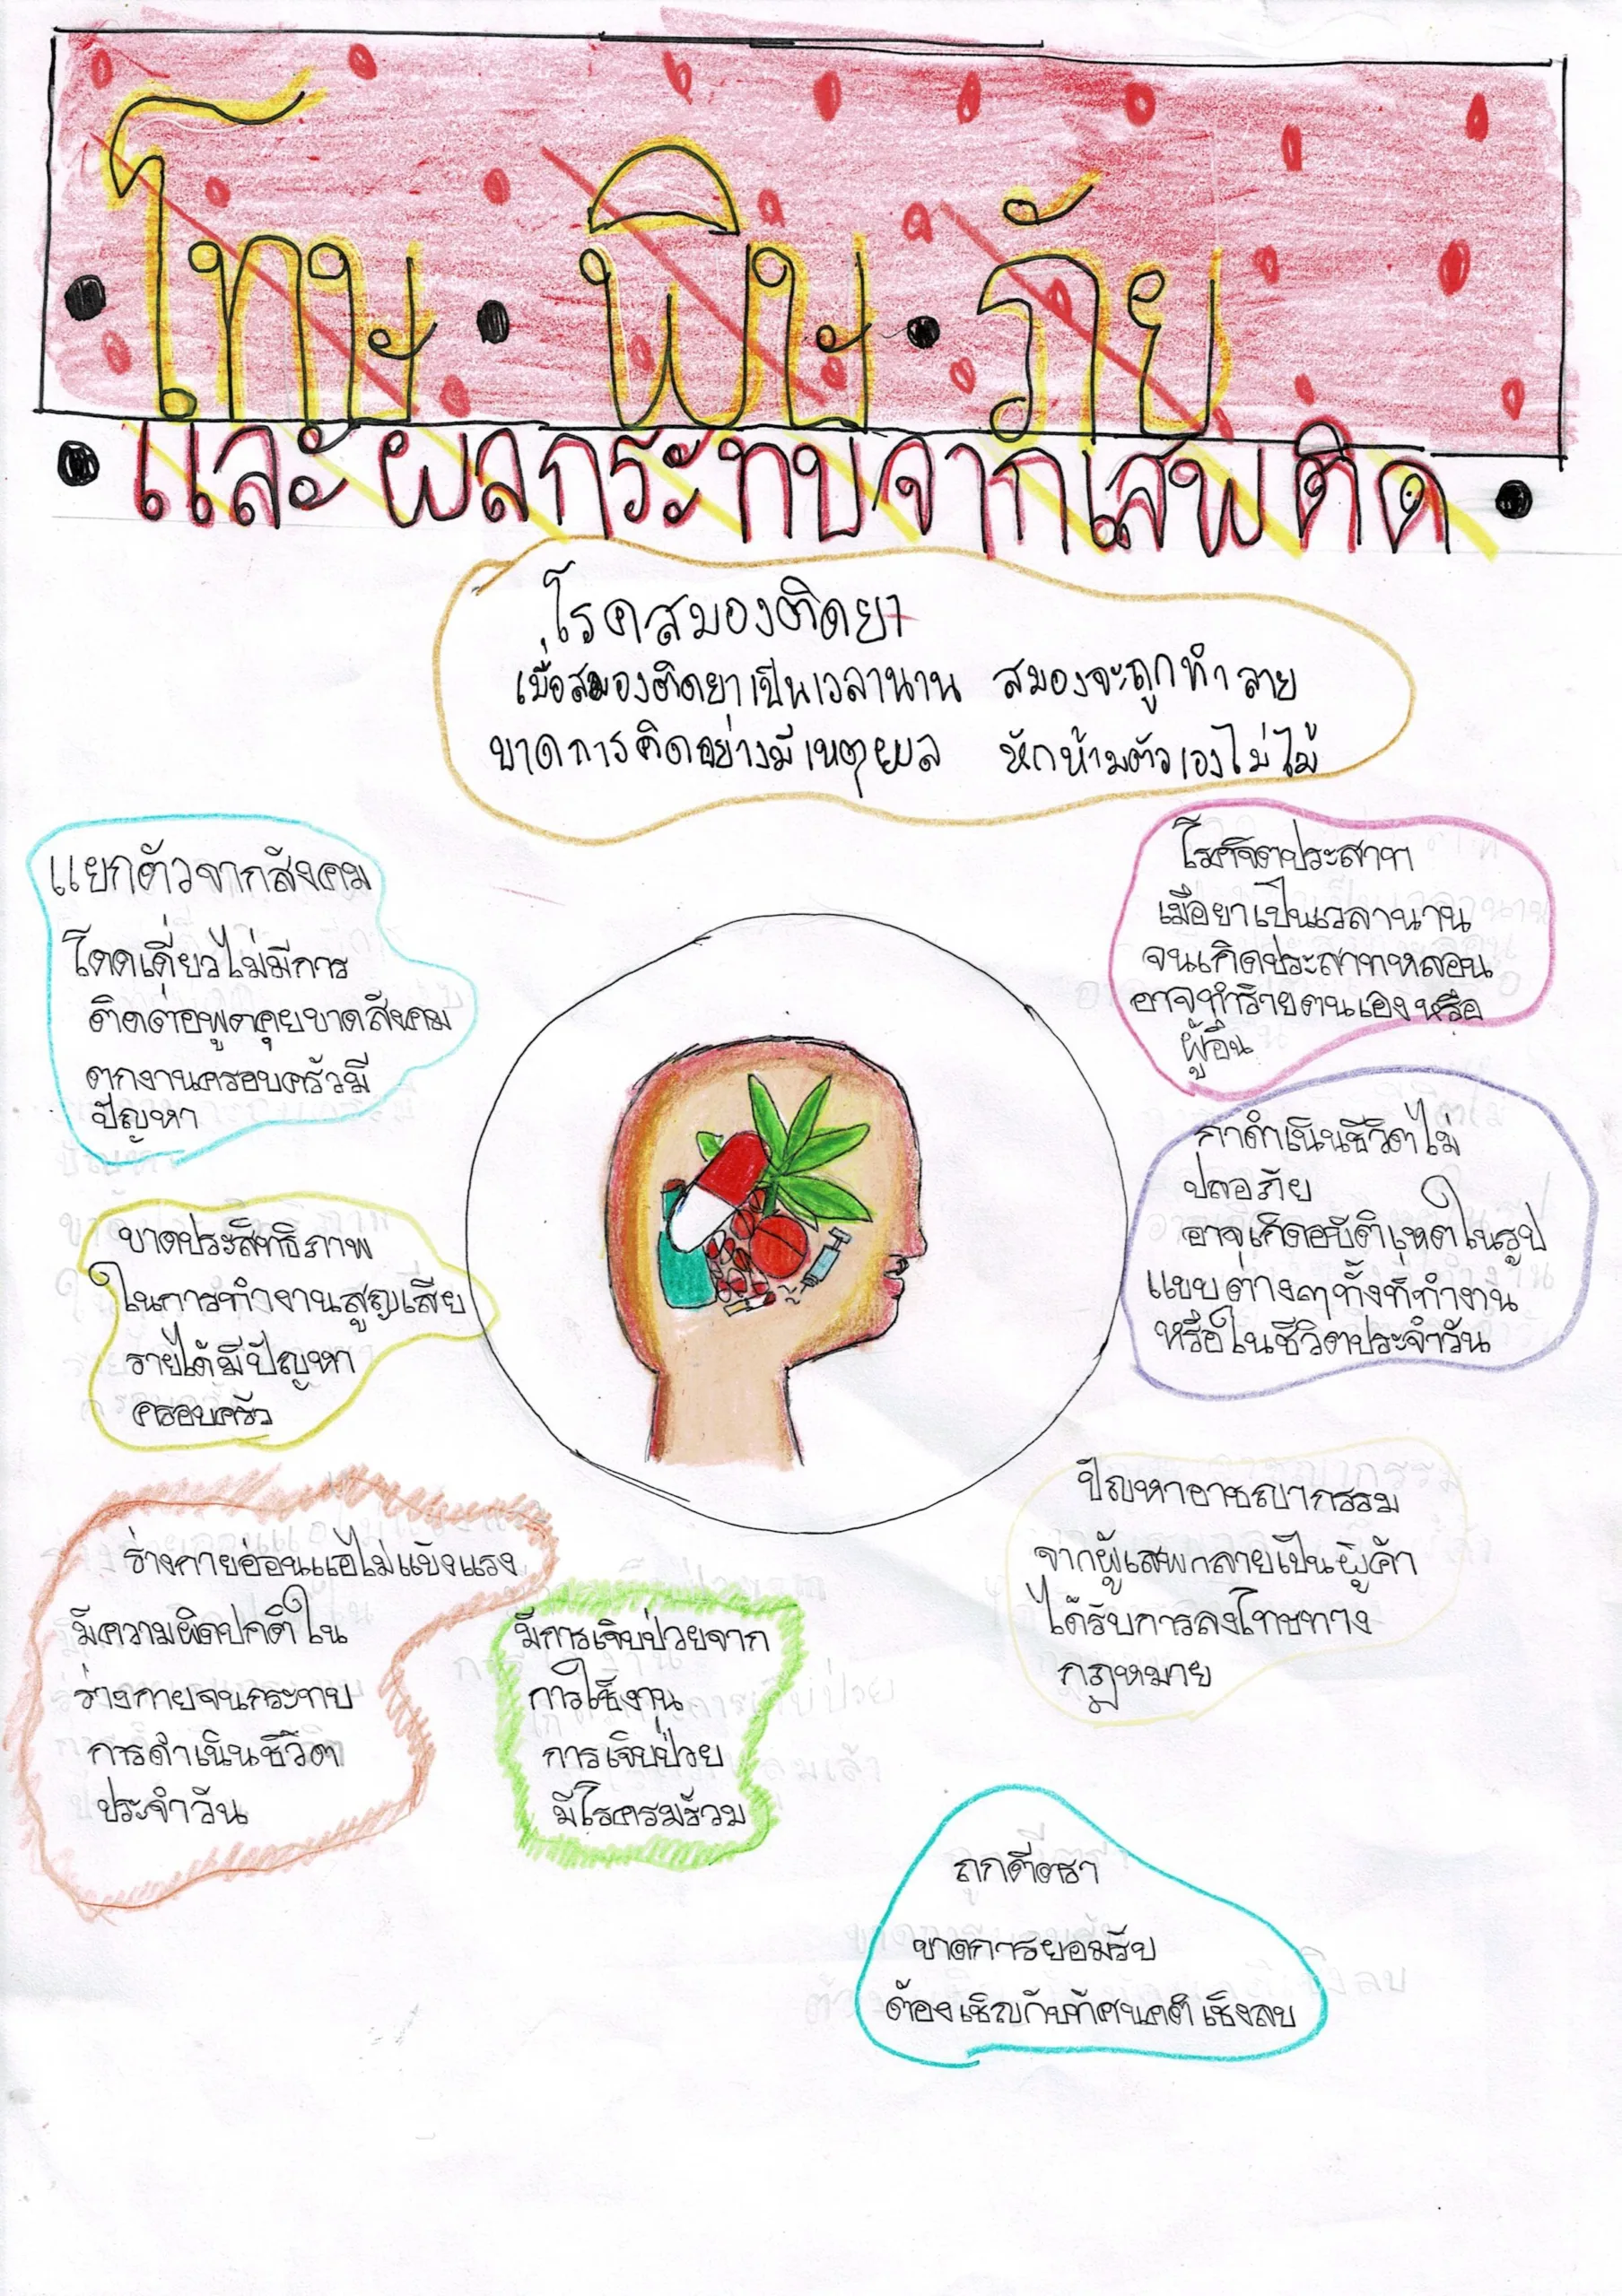 โทษ พิษ ภัย
และผลกระทบจากเสพติด
โรคสมองติดยา
เมื่อสมองติดยาเป็นเวลานาน สมองจะถูกทำลาย
ขาดการคิดอย่างมีเหตุผล หักห้ามตัวเองไม่ไม้
แยกตัวจากสังคม
โดดเดี่ยวไม่มีการ
ติดต่อพูดคุยขาดสังคม
ตกงานครอบครัวมี
ปัญหา
โรคจิตประสาท
เมื่อยาเป็นเวลานาน
จนเกิดประสาทหลอน
อาจทำร้ายตนเองหรือ
ผู้อื่น
กาดำเนินชีวิตไม่
ปลอภัย
อาจเกิดอบัติเหตุในรูป
แบบต่างๆทั้งที่ทำงาน
หรือในชีวิตประจำวัน
ขาดประสิทธิภาพ
ในการทำงานสูญเสีย
รายได้มีปัญหา
ครอบครัว
ร่างกายอ่อนแอไม่แข็งแรง
มีความผิดปกติใน
ร่างกายจนกระทบ
การดำเนินชีวิต
ประจำวัน
มีการเจ็บป่วยจาก
การใช้งาน
การเจ็บป่วย
มีโรครมร้วม
ปัญหาอาชญากรรม
จากผู้เสพกลายเป็นผู้ค้า
ได้รับการลงโทษทาง
กฎหมาย
ถูกตีตรา
ขาดการยอมรับ
ต้องเชิญกับทัศนคติเชิงลบ